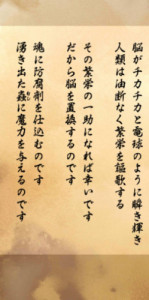 脳がチカチカと電球のように瞬き輝き
人類は油断なく繁栄を謳歌する
その繁栄の一助になれば幸いです
だから脳を置換するのです
魂に防腐剤を仕込むのです
湧き出た蟲に魔力を与えるのです